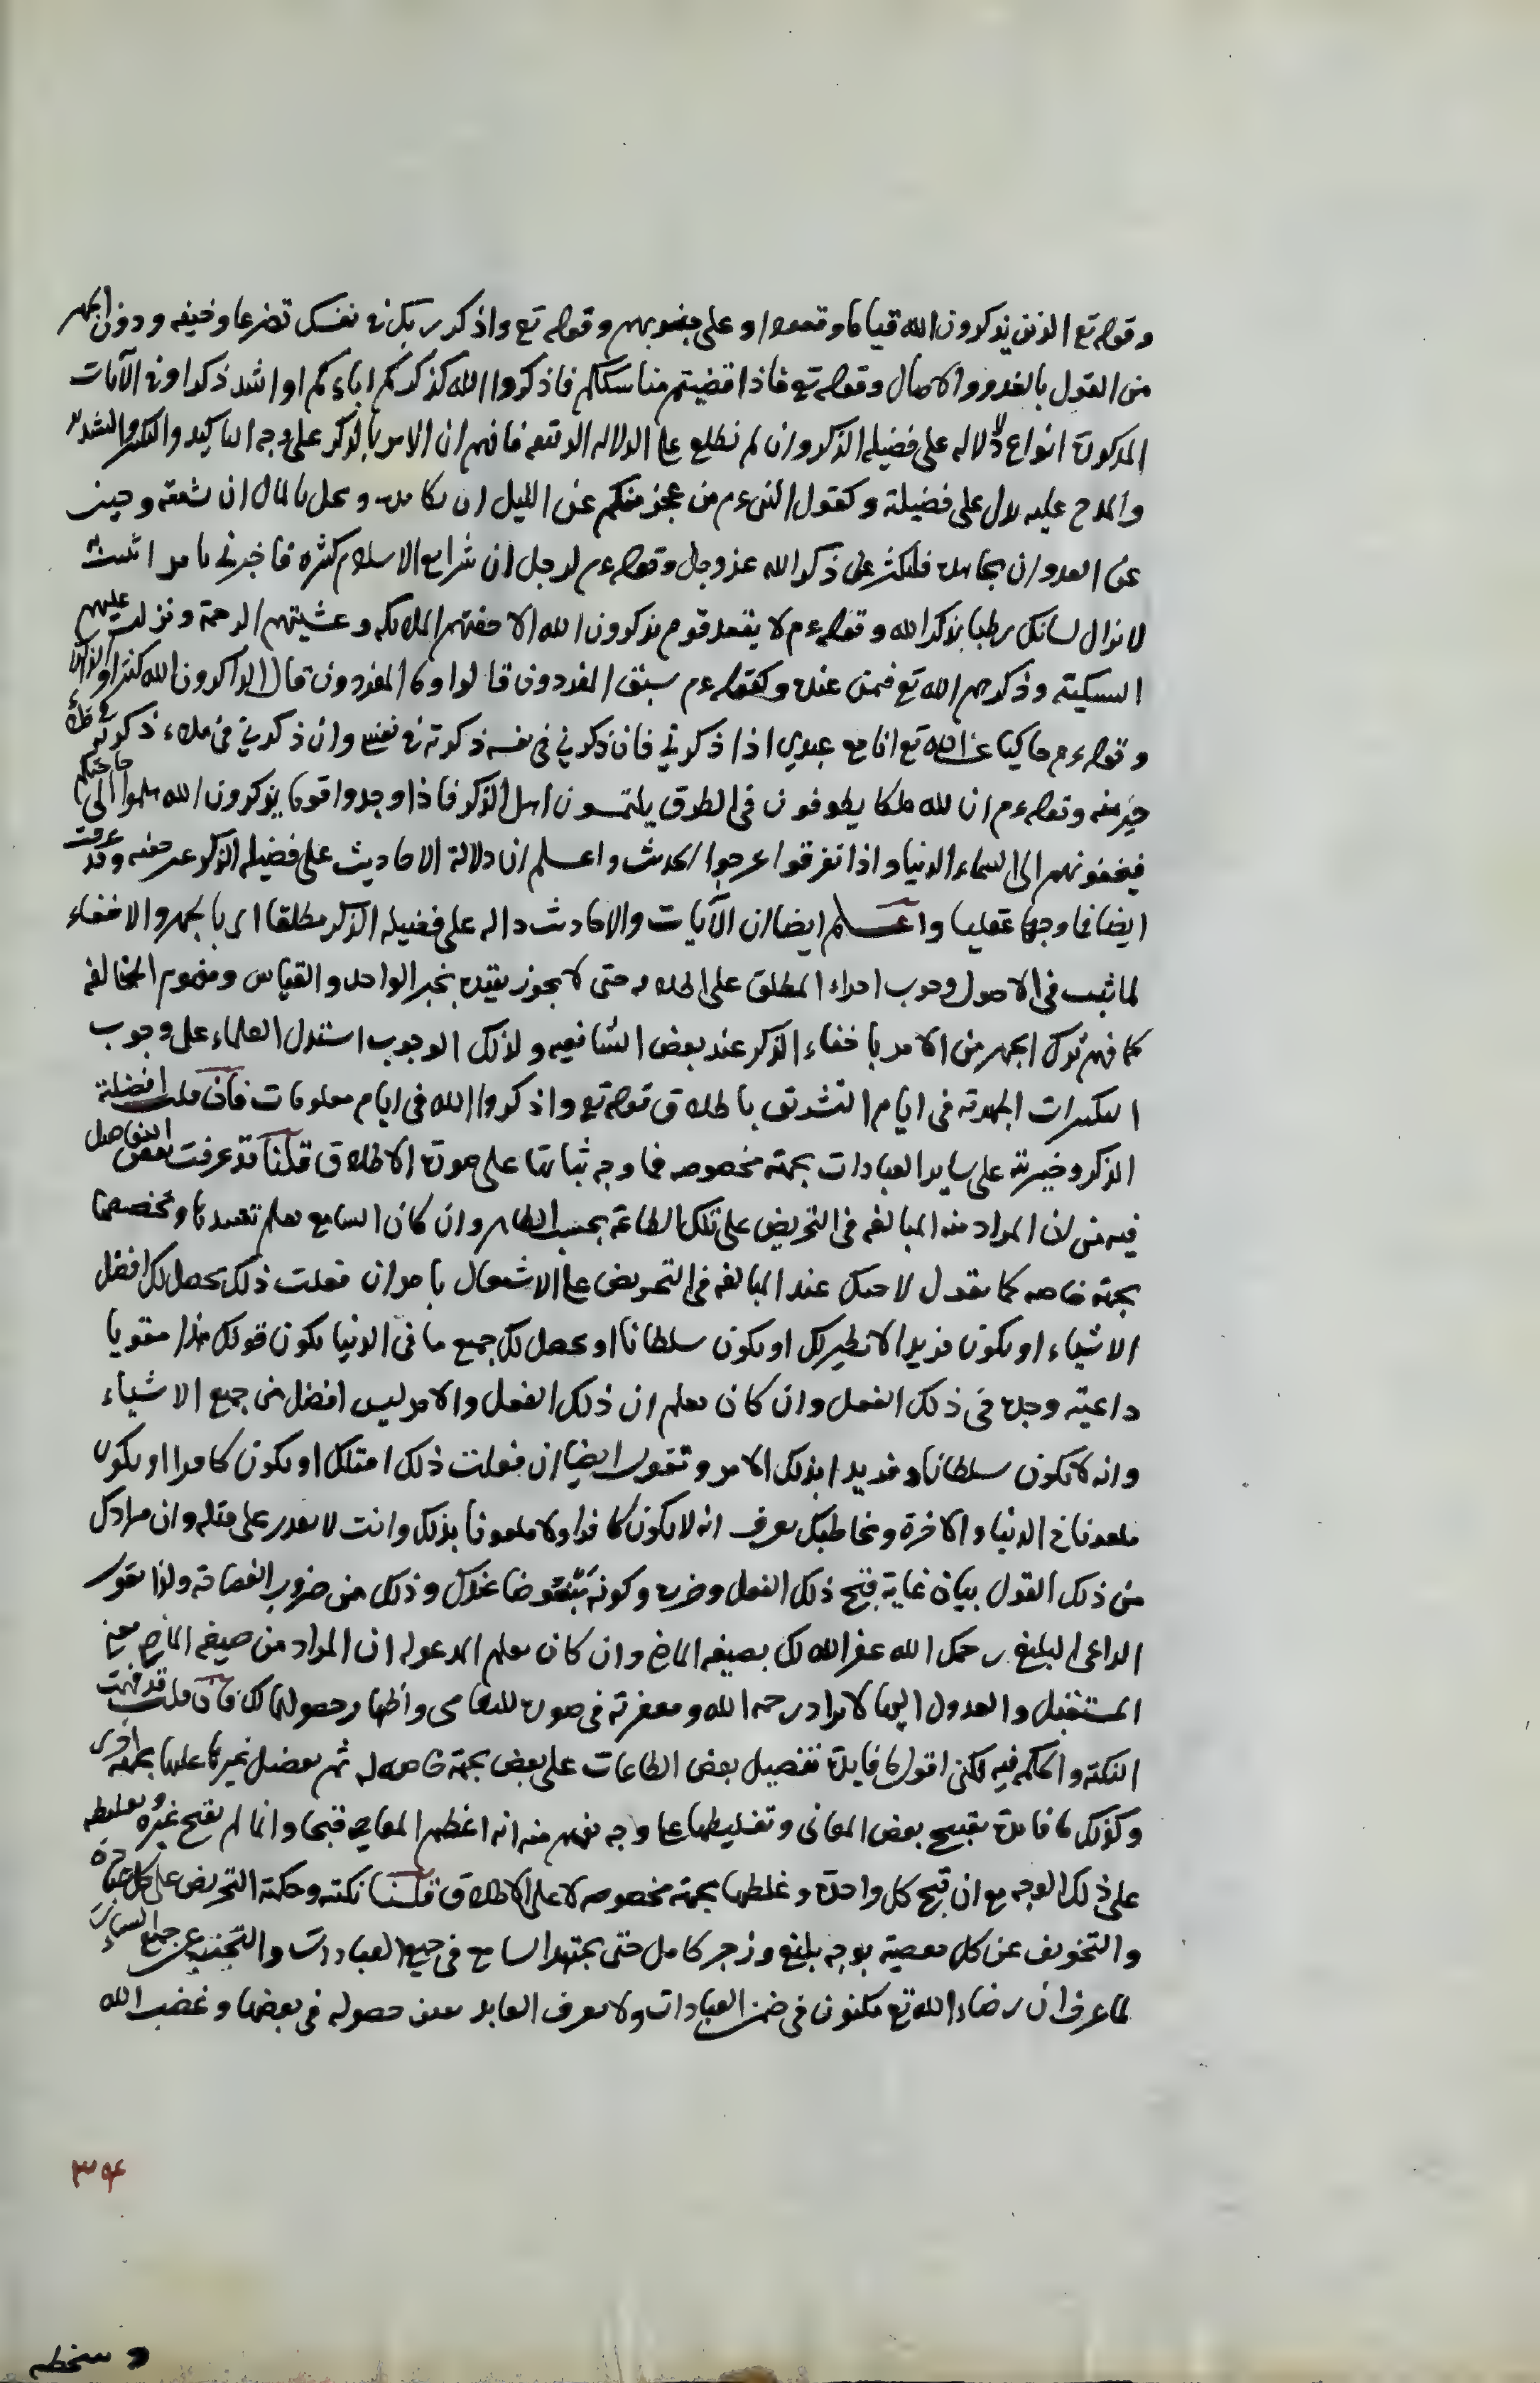 وقوله تع الذين يذكرون الله قياما وقعودا وعلى جنوبهم وقوله تع واذكر ربك في نفسك تضرعا وخيفه ودون الجهر
من القول بالغدو والاصال وقوله تع فاذا قضيتم مناسككم فاذكروا الله كذكركم اباءكم او اشد ذكرا وفي الآيات
المذكورة انواع دلاله على فضيله الذكر وان لم تطلع على الدلاله فافهم ان الامر بالذكر على وجه التاكيد والتكرر والتشديد
والمدح عليه يدل على فضيلته وكقول النبى ءم من عجز منكم عن الليل ان يكابده وبخل بالمال ان ينفقه وجبن
عن العدو ان يجاهده فليكثر ذكر الله عز وجل وقوله ءم لرجل ان شرايع الاسلام كثره فاخبرني بامر اتشبث به
لا يزال لسانك رطبا بذكر الله وقوله ءم لا يقعد قوم يذكرون الله الا حفتهم الملائكه وغشيتهم الرحمة ونزلت عليهم
السكينه وذكرهم الله تع فيمن عنده وكقوله ءم سبق المفردون قالوا وما المفردون قال الذاكرون الله كثيرا والذاكرات
وقوله ءم حاكيا عن الله تع انا مع عبدي اذا ذكرني فان ذكرني في نفسه ذكرته في نفسي وان ذكرني في ملاء ذكرته في ملاء
خير منه وقوله ءم ان لله ملكا يطوفون في الطرق يلتمسون اهل الذكر فاذا وجدوا قوما يذكرون الله هلموا الى حاجتكم
فيحفونهم الى السماء الدنيا واذا تفرقوا عرجوا الحديث واعلم ان دلالة الاحاديث على فضيله الذكر غير خفيه وقد عرفت
ايضا وجها عقليا واعلم ايضا ان الآيات والاحاديث داله على فضيله الذكر مطلقا اى بالجهر والاخفاء
لما ثبت في الاصول وجوب اجراء المطلق على اطلاقه حتى لا يجوز تقييده بخبر الواحد والقياس ومفهوم المخالفه
كما فهم ترك الجهر من الامر باخفاء الذكر عند بعض الشافعيه ولذلك الوجوب استدل العلماء على وجوب
التكبيرات الجهرية في ايام التشريق باطلاق قوله تع واذكروا الله في ايام معلومات فان قلت افضلية
الذكر وخيريته على ساير العبادات بجهة مخصوصه فما وجه بيانها على صورة الاطلاق قلنا قد عرفت بعض التفاصيل
فيه من ان المراد منه المبالغه في التحريض على تلك الطاعة بحسب الظاهر وان كان السامع يعلم تقييدها وتخصيصها
بجهة خاصه كما تقول لاحد عند المبالغه في التحريض على الاشتغال بامر ان فعلت ذلك يحصل لك افضل
الاشياء او تكون فريدا لا نظير لك او تكون سلطانا او يحصل لك جميع ما في الدنيا يكون قولك هذا مقويا
داعيته وجده في ذلك الفعل وان كان يعلم ان ذلك الفعل والامر ليس افضل من جميع الاشياء
وانه لا يكون سلطانا وفريدا بذلك الامر وتقول ايضا ان فعلت ذلك اقتلك او تكون كافرا او تكون
ملعونا في الدنيا والاخرة ومخاطبك يعرف انه لا يكون كافرا ولا ملعونا بذلك وانت لا تقدر على قتله وان مرادك
من ذلك القول بيان غاية قبح ذلك الفعل وضرره وكونه مبغوضا عندك وذلك من ضروب الفصاحة ولذا يقول
الداعى البليغ رحمك الله غفر الله لك بصيغه الماضي وان كان يعلم المدعو له ان المراد من صيغه الماضي معنى
المستقبل والعدول اليها لايراد رحمه الله ومغفرته في صورة الماضى واظهار حصولها لك فان قلت قد فهمت
النكته والحكم فيه لكنى اقول ما فايدة تفضيل بعض الطاعات على بعض بجهة خاصه له ثم تفضيل غيرها عليها بجهة اخرى
وكذلك ما فايدة تقبيح بعض المعاصى وتغليظها على وجه يفهم منه انه اعظم المعاصي قبحا وانما لم يقبح غيره وتغليظه
على ذلك الوجه مع ان قبح كل واحدة وغلظها بجهة مخصوصه لا على الاطلاق قلنا نكتته وحكمة التحريض على كل عبادة
والتخويف عن كل معصية بوجه بليغ وزجر كامل حتى يجتهد السامع في جميع العبادات والتجنب عن جميع السيئات
لما عرف ان رضاء الله تع مكنون في ضمن العبادات ولا يعرف العابد تعين حصوله في بعضها وغضب الله
٣٩٤
وسخطه